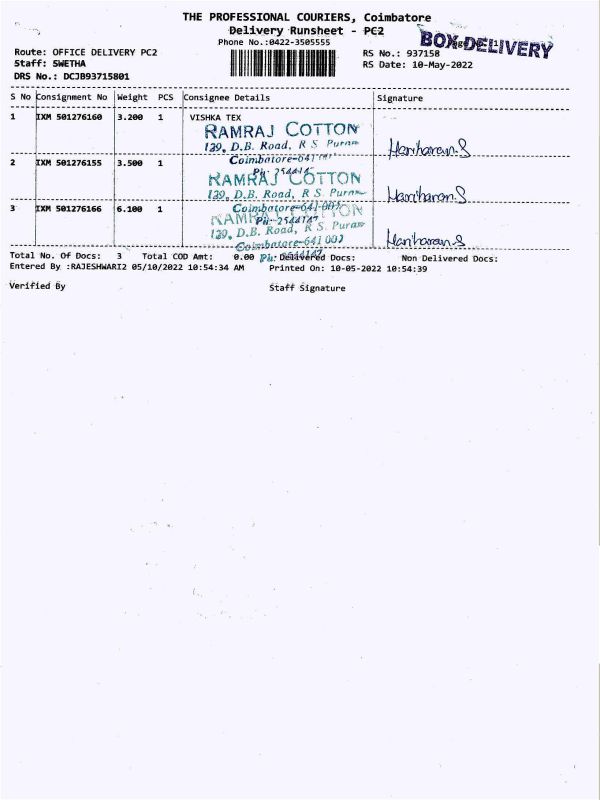 THE PROFESSIONAL COURIERS, Coimbatore
Delivery Runsheet - PC2
Phone No.:0422-3505555
BOX-DELIVERY
Route: OFFICE DELIVERY PC2
RS No.: 937158
Staff: SWETHA
RS Date: 10-May-2022
DRS No.: DCJB93715801
S No Consignment No Weight PCS Consignee Details Signature
1 IXM 501276160 3.200 1 VISHKA TEX
RAMRAJ COTTON
139, D.B. Road, R S Puram
Hariharan.S
Coimbatore-641
2 IXM 501276155 3.500 1
RAMRAJ COTTON
139, D.B. Road, R S Puram
Hariharan.S
Coimbatore-641 002
3 IXM 501276166 6.100 1
RAMRAJ COTTON
Ph: 2544147
139, D.B. Road, R S Puram
Coimbatore-641 002
Hariharan.S
Total No. Of Docs: 3 Total COD Amt: 0.00 Delivered Docs: Non Delivered Docs:
Ph: 2544147
Entered By :RAJESHWARI2 05/10/2022 10:54:34 AM Printed On: 10-05-2022 10:54:39
Verified By Staff Signature